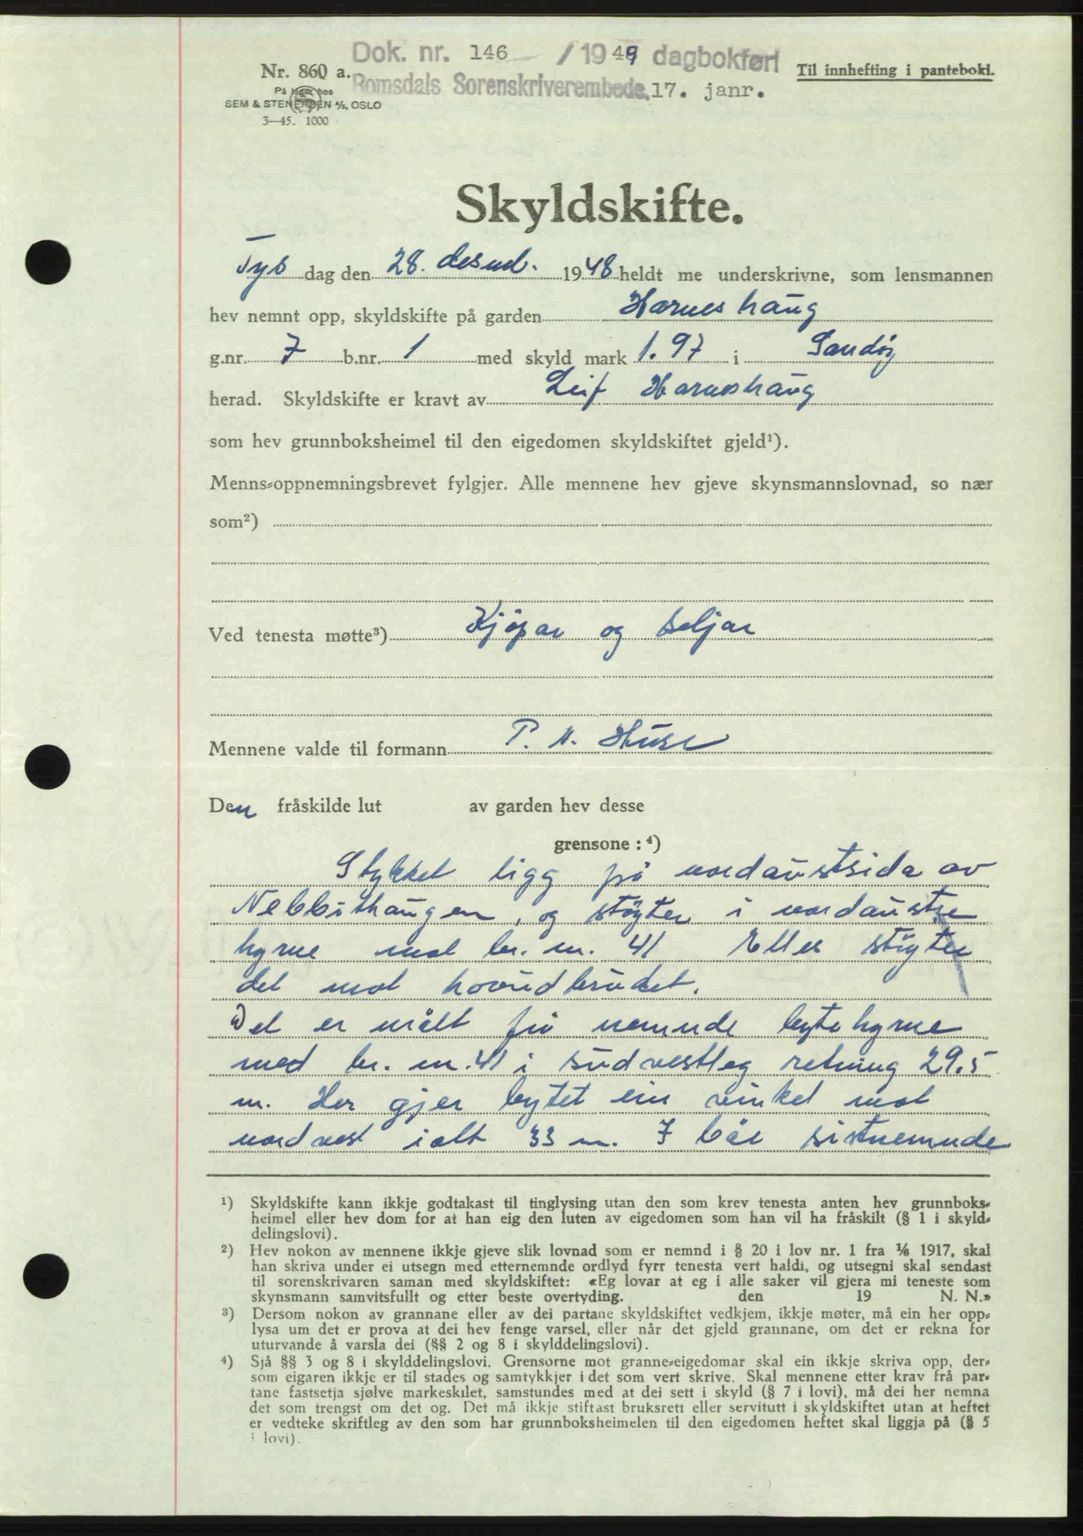 Dok. nr. 146 / 1949 dagbokført
Nr. 860 a.
Til innhefting i pantebok.
Romsdals Sorenskriverembede, 17. janr.
På lager hos
SEM & STENERSEN A/S, OSLO
3—45. 1000
Skyldskifte.
Tys dag den 28. desemb. 1948 heldt me underskrivne, som lensmannen
hev nemnt opp, skyldskifte på garden Harneshaug
g.nr. 7 b.nr. 1 med skyld mark 1.97 i Sandøy
herad. Skyldskifte er kravt av Leif Harneshaug
som hev grunnboksheimel til den eigedomen skyldskiftet gjeld¹).
Menns-oppnemningsbrevet fylgjer. Alle mennene hev gjeve skynsmannslovnad, so nær
som²)
Ved tenesta møtte³) Kjøpar og seljar
Mennene valde til formann P. N. Huse
Den fråskilde lut av garden hev desse
grensone : ⁴)
Stykket ligg på nordaustsida av
Nebbithaugen, og støyter i nordaustre
hyrne mot br. nr. 41 Elles støyter
det mot hovudbruket.
Det er målt frå nemnde bytehyrne
med br. nr. 41 i sudvestleg retning 29.5
m. Her gjer bytet ein vinkel mot
nordvest ialt 33 m. I båe sistnemnde
¹) Skyldskifte kann ikkje godtakast til tinglysing utan den som krev tenesta anten hev grunnboks-
heimel eller hev dom for at han eig den luten av eigedomen som han vil ha fråskilt (§ 1 i skyld-
delingslovi).
²) Hev nokon av mennene ikkje gjeve slik lovnad som er nemnd i § 20 i lov nr. 1 fra ¹⁄₆ 1917, skal
han skriva under ei utsegn med etternemnde ordlyd fyrr tenesta vert haldi, og utsegni skal sendast
til sorenskrivaren saman med skyldskiftet: «Eg lovar at eg i alle saker vil gjera mi teneste som
skynsmann samvitsfullt og etter beste overtyding. den 19 N. N.»
³) Dersom nokon av grannane eller av dei partane skyldskiftet vedkjem, ikkje møter, må ein her opp-
lysa um det er prova at dei hev fenge varsel, eller når det gjeld grannane, om det er rekna for
uturvande å varsla dei (§§ 2 og 8 i skylddelingslovi).
⁴) Sjå §§ 3 og 8 i skylddelingslovi. Grensorne mot granne-eigedomar skal ein ikkje skriva opp, der-
som eigaren ikkje er til stades og samtykkjer i det som vert skrive. Skal mennene etter krav frå par-
tane fastsetja sjølve markeskilet, samstundes med at dei sett i skyld (§ 7 i lovi), må dei her nemna
det som trengst om det og. Det må ikkje stiftast bruksrett eller servitutt i skyldskiftet utan at heftet
er vedteke skriftleg av den som har grunnboksheimelen til den eigedomen heftet skal liggja på (§ 5
i lovi).